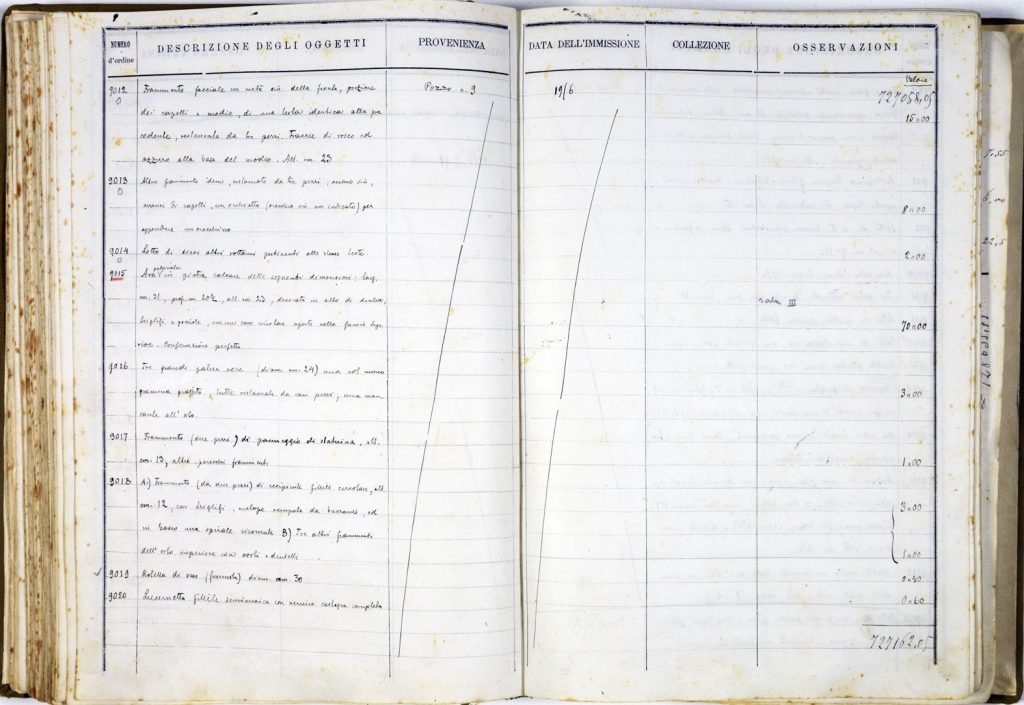 NUMERO d'ordine
DESCRIZIONE DEGLI OGGETTI
PROVENIENZA
DATA DELL'IMMISSIONE
COLLEZIONE
OSSERVAZIONI
Valore
727058,05
9012 Frammento facciale con metà della fronte, porzione Pozzo n. 9 19/6
dei capelli e modio, di una testa identica alla pre 15,00
cedente, restaurata da tre pezzi. Tracce di rosso ed
azzurro alla base del modio. Alt. cm. 23
9013 Altro frammento idem, restaurato da tre pezzi; occhio
di capelli, con orchietto per 8,00
appendere un orecchino
9014 Lotto di altri rottami pertinenti alle stesse teste. 2,00
9015 Ara in pietra calcare delle seguenti dimensioni: larg.
cm. 31, prof. cm. 20½, alt. cm 23, decorata in alto di dentelli, sala III
triglifi e nella faccia supe 70,00
riore. Conservazione perfetta
9016 Tre grandi patere nere (diam. cm. 24) una col mono
gramma graffito, tutte restaurate da vari pezzi, una man 3,00
cante all'orlo.
9017 Frammento (due pezzi) di panneggio di statuina, alt.
cm. 13, altri piccoli frammenti 1,00
9018 A) Frammento (da due pezzi) di recipiente fittile circolare, alt.
cm. 12, con triglifi, metope occupate da bucrani, ed 3,00
in basso una spirale ricorrente B) Tre altri frammenti
dell'orlo superiore con ovoli e dentelli 1,00
9019 Rotella di osso diam. mm. 30 0,40
9020 Lucernetta fittile con vernice castagna completa 0,60
727162,05